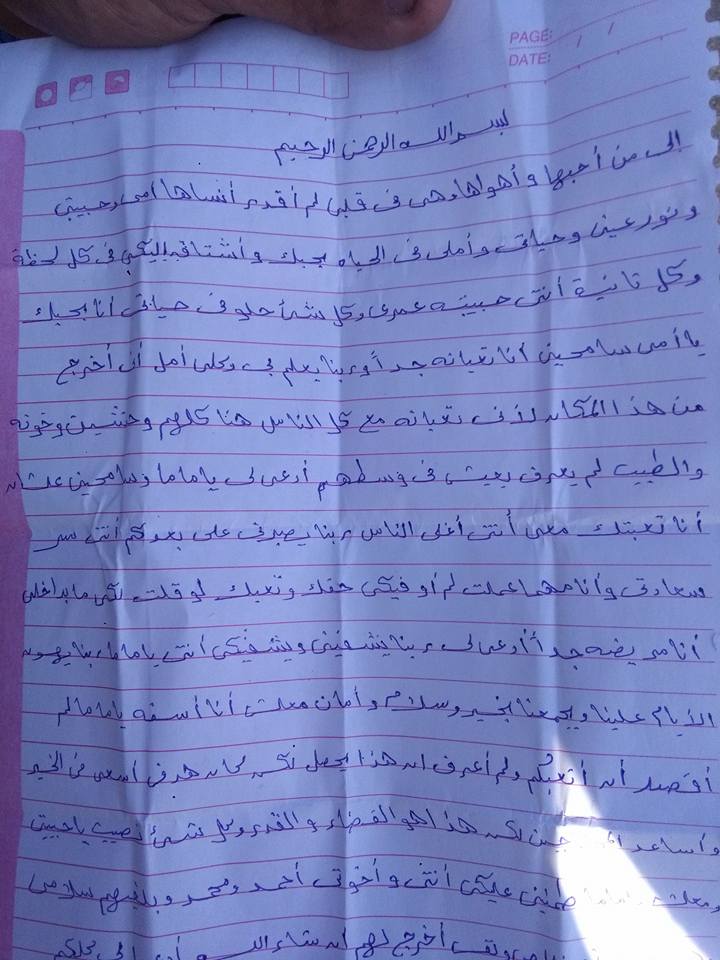 PAGE: / /
DATE:
بسم الله الرحمن الرحيم
إلى من أحبها و أهواها وهى فى قلبى لم أقدر أنساها أمى وحبيبتى
ونور عينى وحياتى وأملى فى الحياه بحبك وأشتاق إليكى فى كل لحظة
وكل ثانية أنتى حبيبته عمرى وكل شئ حلو فى حياتى أنا بحبك
يا أمى سامحينى أنا تعبانه جداً وربنا يعلم بى وكلى أمل أن أخرج
من هذا المكان لأنى تعبانه مع كل الناس هنا كلهم وحشين وخونه
والطيب لم يعرف يعيش فى وسطهم أدعى لى ياماما وسامحينى علشان
أنا تعبتك معى أنتى أغلى الناس ربنا يصبرنى على بعدكم أنتى سر
سعادتى وأنا مهما عملت لم أوفيكى حقك وتعبك لو قلت لكى ما بداخلى
أنا مريضه جداً أدعى لى ربنا يشفينى ويشفيكى أنتى ياماما ربنا يهون
الأيام علينا ويجمعنا بخير وسلام وأمان معلش أنا أسفه ياماما لم
أقصد أن أتعبكم ولم أعرف ان هذا يحصل لكن كان هدفى أسعى فى الخير
وأساعد لكن هذا هو القضاء والقدر وكل شئ نصيب ياحبيبتى
ومعلش ياماما طمنينى عليكى أنتى و أخوتى أحمد ومحمد وبلغيهم سلامى
أخرج لهم ان شاء الله